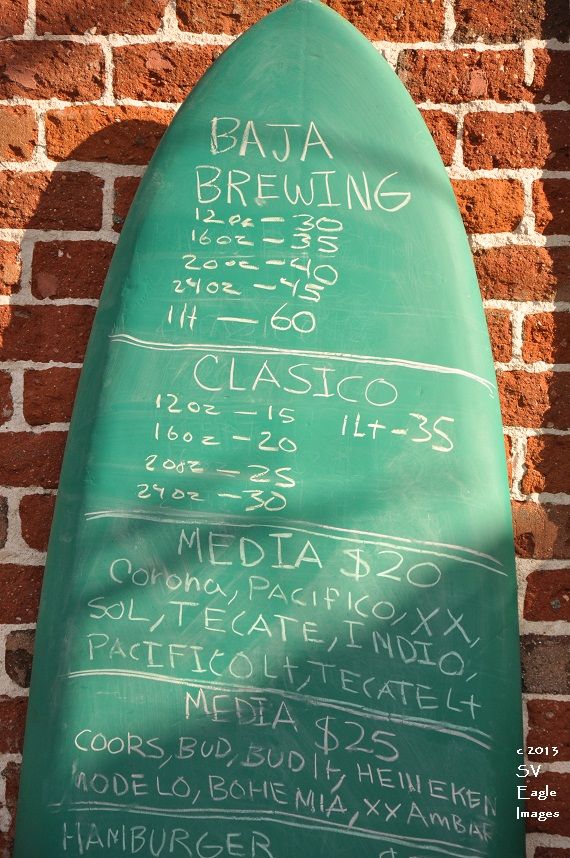 BAJA
BREWING
12oz - 30
16oz - 35
20oz - 40
24oz - 45
1lt - 60
CLASICO
12oz - 15 1Lt - 35
16oz - 20
20oz - 25
24oz - 30
MEDIA $20
Corona, PACIFICO, XX,
SOL, TECATE, INDIO,
PACIFICO Lt, TECATE Lt
MEDIA $25
COORS, BUD, BUD lt, HEINEKEN
MODELO, BOHEMIA, XX AmBAR
HAMBURGER
c 2013
SV
Eagle
Images